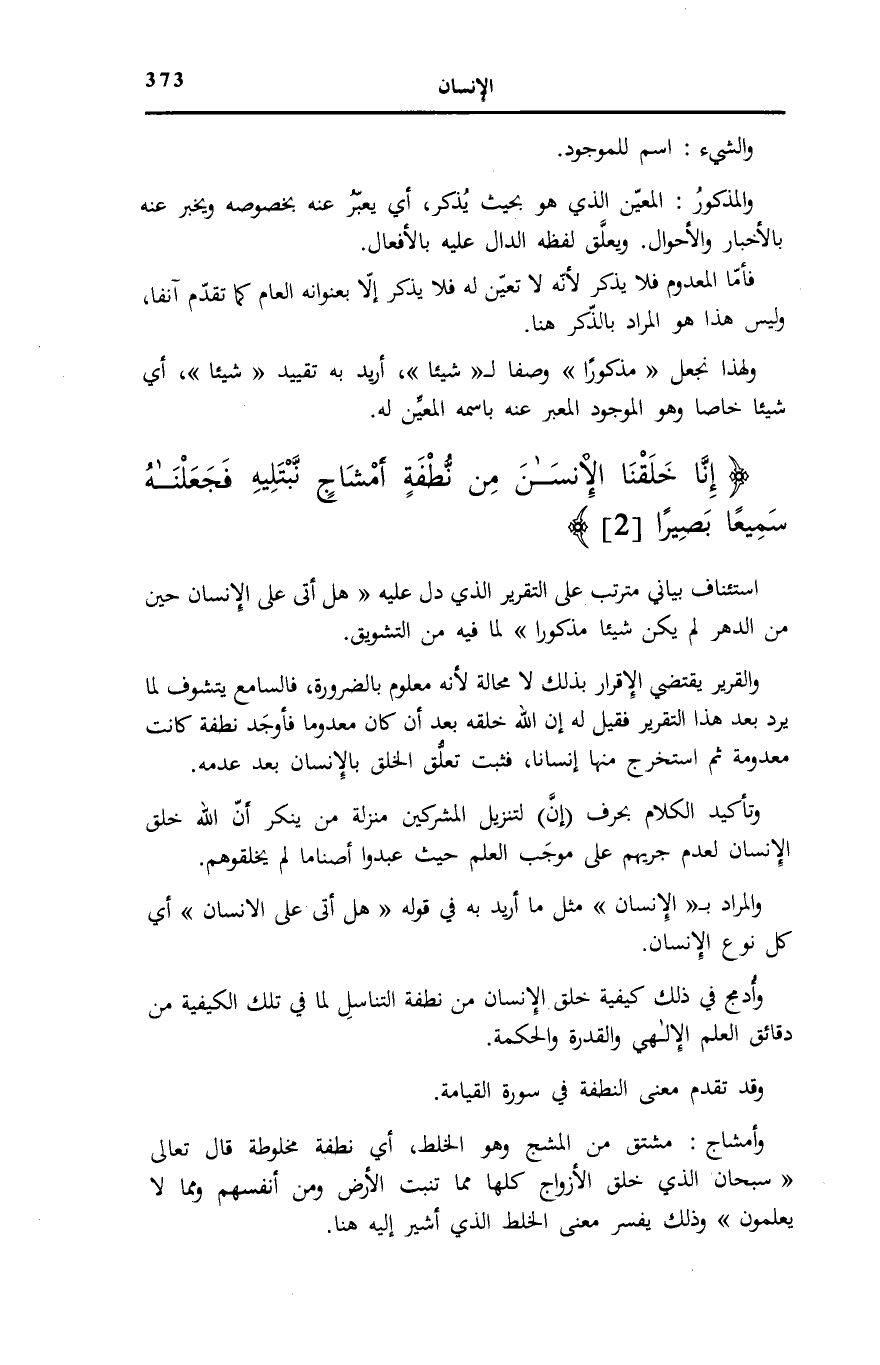 373
الإنسان
والشيء : اسم للموجود.
والمذكورُ : المعيّن الذي هو بحيث يُذكر، أي يعبّرُ عنه بخصوصه ويخبر عنه
بالأخبار والأحوال. ويعلَّق لفظه الدال عليه بالأفعال.
فأمّا المعدوم فلا يذكر لأنّه لا تعيّن له فلا يذكر إلّا بعنوانه العام كما تقدّم آنفا،
وليس هذا هو المراد بالذّكر هنا.
ولهذا نجعل « مذكورًا » وصفا لـ« شيئا »، أريد به تقييد « شيئا »، أي
شيئا خاصا وهو الموجود المعبر عنه باسمه المعيَّن له.
﴿ إِنَّا خَلَقْنَا الإْنسَـٰنَ مِن نُّطْفَةٍ أَمْشَاجٍ نَّبْتَلِيهِ فَجَعَلْنَـٰهُ
سَمِيعًا بَصِيرًا [2] ﴾
استئناف بياني مترتب على التقرير الذي دل عليه « هل أتى على الإنسان حين
من الدهر لم يكن شيئا مذكورا » لما فيه من التشويق.
والقرير يقتضي الإقرار بذلك لا محالة لأنه معلوم بالضرورة، فالسامع يتشوف لما
يرد بعد هذا التقرير فقيل له إن الله خلقه بعد أن كان معدوما فأوجَد نطفة كانت
معدومة ثم استخرج منها إنسانا، فثبت تعلُّق الخلق بالإنسان بعد عدمه.
وتأكيد الكلام بحرف (إنَّ) لتنزيل المشركين منزلة من ينكر أنّ الله خلق
الإنسان لعدم جريهم على موجَب العلم حيث عبدوا أصناما لم يخلقوهم.
والمراد بـ« الإنسان » مثل ما أريد به في قوله « هل أتى على الانسان » أي
كل نوع الإنسان.
وأُدمج في ذلك كيفية خلق الإنسان من نطفة التناسل لما في تلك الكيفية من
دقائق العلم الإلـٰهي والقدرة والحكمة.
وقد تقدم معنى النطفة في سورة القيامة.
وأمشاج : مشتق من المشج وهو الخلط، أي نطفة مخلوطة قال تعالى
« سبحان الذي خلق الأزواج كلها مما تنبت الأرض ومن أنفسهم ومما لا
يعلمون » وذلك يفسر معنى الخلط الذي أشير إليه هنا.